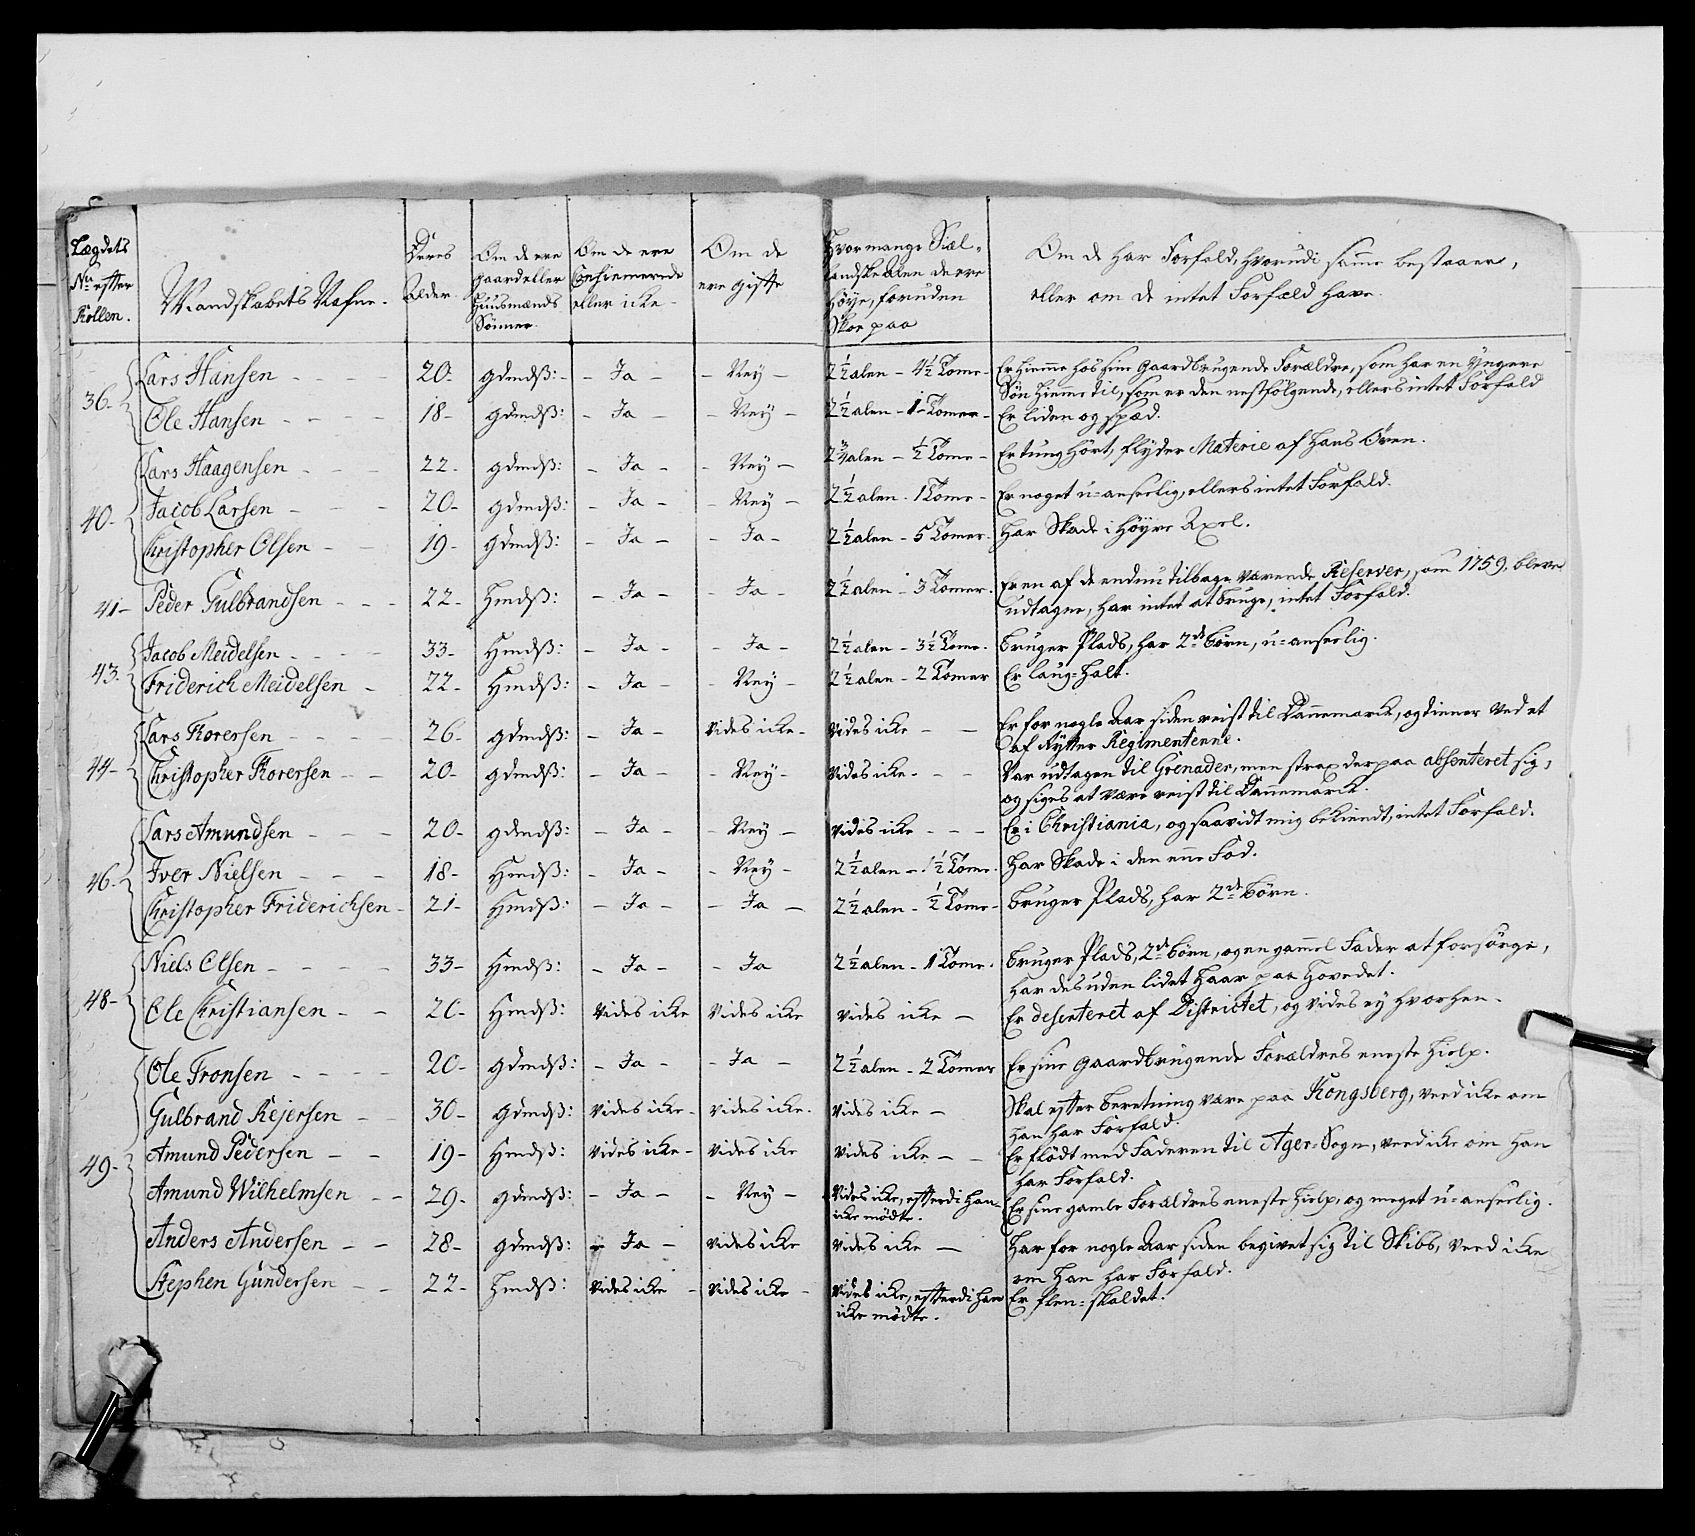 Lægdets No. efter Rollen.
Mandskabets Nafne.
Deres Alder
Om de ere Gaard eller Huusmænds Sönner.
Om de ere Confirmerede eller icke
Om de ere gifte
Hvor mange Siællandske Alen de ere Höye, foruden Skoe paa
Om de har Forfald, hvorudi samme bestaaer, eller om de intet Forfald have.
36. Lars Hansen - 20 - gdmdß: - Ja - Ney - 2½ alen - 4½ Tomr - Er hiemme hos sine Gaardbrugende Forældre, som har en Yngere
Sön hiemme til, som er den nestfölgende, ellers intet Forfald
Ole Hansen - 18 - gdmdß: - Ja - Ney - 2½ alen - 1 Tomer - Er liden og spæd.
40. Lars Haagensen - 22 - gdmdß: - Ja - Ney - 2¾ alen - ½ Tomr - Er tunghört, flyder Materie af hans Ören.
Jacob Larsen - 20 - gdmdß: - Ja - Ney - 2½ alen - 1 Tomr - Er noget u-anseelig, ellers intet Forfald.
Christopher Olsen - 19 - gdmdß: - Ja - Ja - 2½ alen - 5 Tomer. Har Skade i höyre Axel.
41 - Peder Gulbrandsen - 22 - Hmdß: - Ja - Ja - 2½ alen - 3 Tomer. Er en af de endnu tilbage værende Reserver, som 1759. bleve
udtagne, har intet at bruge, intet Forfald.
43. Jacob Meidelsen - 33 - Hmdß: - Ja - Ja - 2½ alen - 3½ Tomr. Bruger Plads, har 2de Börn, u-anseelig.
Friderich Meidelsen - 22 - Hmdß: - Ja - Ney - 2½ alen - 2 Tomer Er laug-halt.
44 - Lars Korersen - 26 - gdmdß: - Ja - Vides icke - Vides icke - Er for nogle Aar siden reist til Dannemarck, og tiener ved et
af Rytter Regimenterne.
Christopher Korersen - 20 - gdmdß: - Ja - Ney - Vides icke - Var udtagen til Grenader, men strax derpaa absenteret sig,
og siges at være reist til Dannemarck.
46. Lars Amundsen - 20 - gdmdß: - Ja - Ney - Vides icke - Er i Christiania, og saavidt mig bekiendt, intet Forfald.
Iver Nielsen - 18 - Hmdß: - Ja - Ney - 2½ alen - 1½ Tomr. Har Skade i den ene Fod.
Christopher Friderichsen - 21 - Hmdß: - Ja - Ja - 2½ alen - ½ Tomr - Bruger Plads, har 2de Börn.
48 - Niels Olsen - 33 - Hmdß: - Ja - Ja 2½ alen - 1 Tomr. Bruger Plads, 2de Börn, og en gammel Fader at forsörge,
har desuden lidet Haar paa Hovedet.
Ole Christiansen - 20 - Hmdß: Vides icke Vides icke Vides icke - Er desenteret af Districtet, og vides ey hvorhen.
49 - Ole Tronsen - 20 - gdmdß: - Ja - Ja - 2½ alen - 2 Tomer Er sine Gaardbrugende Forældres eneste Hielp.
Gulbrand Rejersen - 30 - gdmdß: Vides icke - Vides icke. Vides icke - Skal efter Beretning være paa Kongsberg, veed icke om
han har Forfald.
Amund Pedersen - 19 - Hmdß: Vides icke - Vides icke Vides icke - Er flödt med Faderen til Ager-Sogn, veed icke om han
har Forfald.
Amund Wilhelmsen - 29 - gdmdß: - Ja - Ney - Vides icke, efterdi han icke mödte. Er sine gamle Forældres eneste Hielp, og meget u-anseelig.
Anders Andersen - 28 - gdmdß: - Ja - Vides icke Vides icke - Har for nogle Aar siden begivet sig til Skibs, veed icke
om han har Forfald.
Stephen Gundersen - 22 - Hmdß: Vides icke - Vides icke - Vides icke, efterdi han icke mödte. Er flen-skaldet.